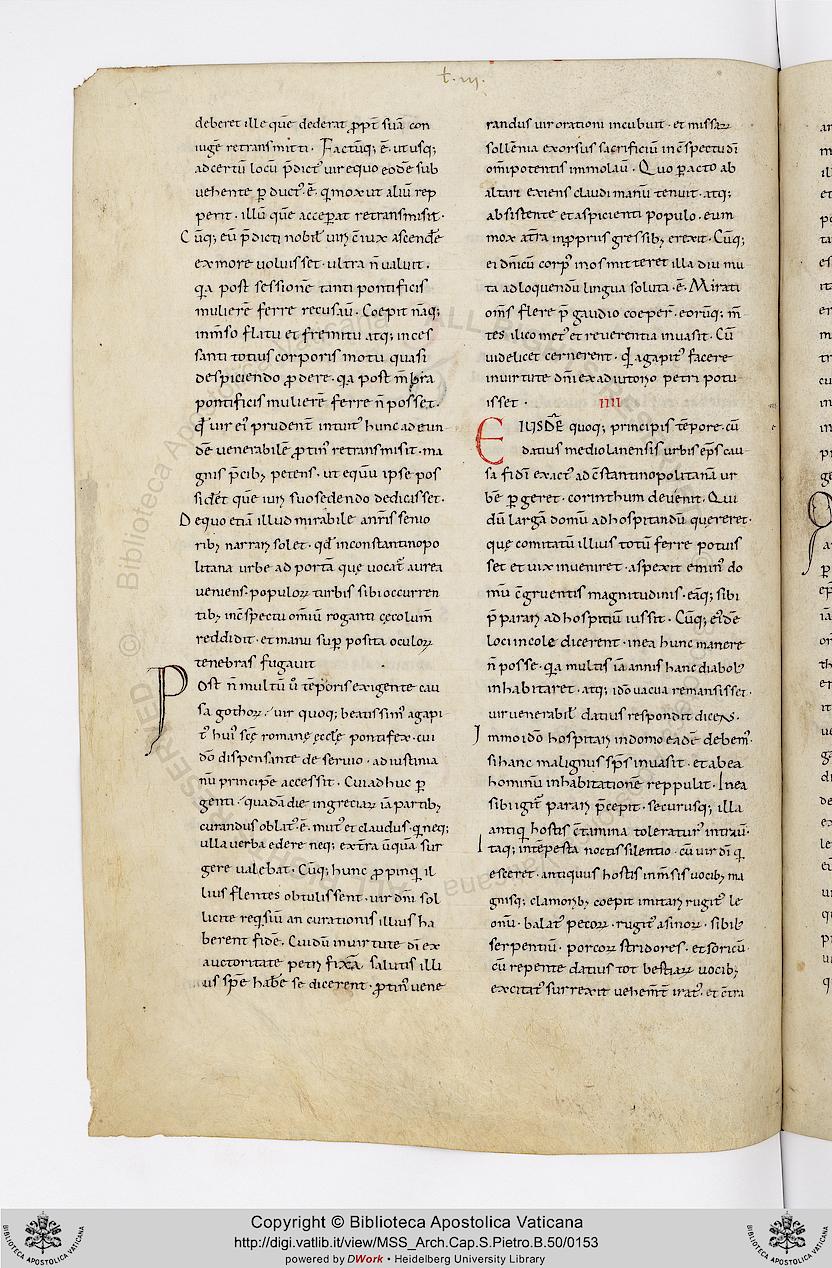 L. III.
deberet ille quē dederat ꝓpt̄ suā con
iuge retransmitti. Factūq; ē. ut usq;
ad certū locū p̄dict' uir equo eodē sub
uehente ꝑduct' ē. q̄ mox ut aliū rep
perit. illū quē acceꝑat retransmisit.
Cūq; eū p̄dicti nobil' uiri c̄iux ascendē
ex more uoluisset. ultra n̄ ualuit.
q̄a post sessionē tanti pontificis
mulierē ferre recusau̅. Coepit nāq;
inm̄so flatu et fremitu atq; inces
santi totius corporis motu quasi
despiciendo ꝓdere. q̄a post m̄bra
pontificis mulierē ferre n̄ posset.
q̄d uir ei' prudent̄ intuit' hunc ad eun
dē uenerabilē ꝓtin' retransmisit. ma
gnis p̄cib; petens. ut equū ipse pos
sidet quē iuri suo sedendo dedicisset.
De quo etiā illud mirabile a nr̄is senio
rib; narrari solet. qd̄ in constantinopo
litana urbe ad portā que uocat̄ aurea
ueniens. populoꝝ turbis sibi occurren
tib; in c̄spectu omiū roganti cęco lum̄
reddidit. et manu suꝑposita oculoꝝ
tenebras fugauit
Post n̄ multū u̅ tēporis exigente cau
sa gothoꝝ. uir quoq; beatissim' agapi
t' hui' scē romanę eccłe pontifex. cui
dō dispensante deseruio. ad iustinia
nū principē accessit. Cui adhuc ꝑ
genti quadā die in greciaꝝ iā partib;
curandus oblat' ē. mut' et claudus. q̄ neq;
ulla uerba edere neq; ex tr̄a ūquā sur
gere ualebat. Cūq; hunc ꝓpinqui il
lius flentes obtulissent. uir dn̄i sol
licite reqsiū an curationis illius ha
berent fidē. Cui dū in uirtute dī ex
auctoritate petri fixā salutis illi
us spē habē se dicerent. ꝓtin' uene
randus uir orationi incubuit. et missaꝝ
sollēnia exorsus sacrificiū in c̄spectu dī
om̄ipotentis immolau̅. Quo ꝑacto ab
altari exiens claudi manū tenuit. atq;
absistente et aspicienti populo. eum
mox a tr̄a in ꝓprius gressib; erexit. Cūq;
ei dn̄icū corp' in os mitteret illa diu mu
ta ad loquendū lingua soluta. ē. Mirati
om̄s flere p̄ gaudio coeper. eorūq; m̄
tes ilico met' et reuerentia inuasit. Cū
uidelicet cernerent. qd̄ agapit' facere
in uirtute dn̄i ex adiutorio petri potu
isset. IIII
EIUSDĒ quoq; principis tēpore. cū
datius mediolanensis urbis ep̄s cau
sa fidī exact' ad c̄stantinopolitanā ur
bē ꝑgeret. corinthum deuenit. Qui
dū largā domū ad hospitandū quereret.
que comitatū illius totū ferre potuis
set et uix inueniret. aspexit emin' do
mū c̄gruentis magnitudinis. eāq; sibi
p̄parari ad hospitiū iussit. Cūq; ei'dē
loci incole dicerent. in ea hunc manere
n̄ posse. q̄a multis iā annis hanc diabol'
inhabitaret. atq; idō uacua remansisset.
uir uenerabil' datius respondit dicens.
Immo idō hospitari in domo eadē debem'.
si hanc malignus sp̄s inuasit. et ab ea
hominū inhabitationē reppulit. In ea
sibi igit̄ parari p̄cepit. securusq; illa
antiq̄ hostis c̄tamina toleratur' intrau̅.
Itaq; intēpesta noctis silentio. cū uir dī q̄
esceret. antiquus hostis inm̄sis uocib; ma
gnisq; clamorib; coepit imitari rugit' le
onū. balat' pecoꝝ. rugit' asinoꝝ. sibil'
serpentiū. porcoꝝ stridores. et soricū.
cū repente datius tot bestiaꝝ uocib;
excitat' surrexit uehem̄t̄ irat'. et c̄tra
Copyright © Biblioteca Apostolica Vaticana
http://digi.vatlib.it/view/MSS_Arch.Cap.S.Pietro.B.50/0153
powered by DWork • Heidelberg University Library